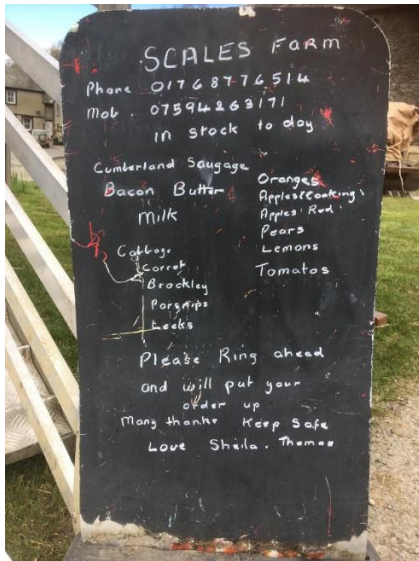 SCALES FARM
Phone 017687 76514
Mob. 07594263171
in stock to day
Cumberland Sausage
Bacon Butter
Milk
Cabbage
Carret
Brockley
Parsnips
Leeks
Oranges
Apples Cooking
Apples Red
Pears
Lemons
Tomatos
Please Ring ahead
and will put your
order up
Many thanks Keep Safe
Love Sheila. Thomas